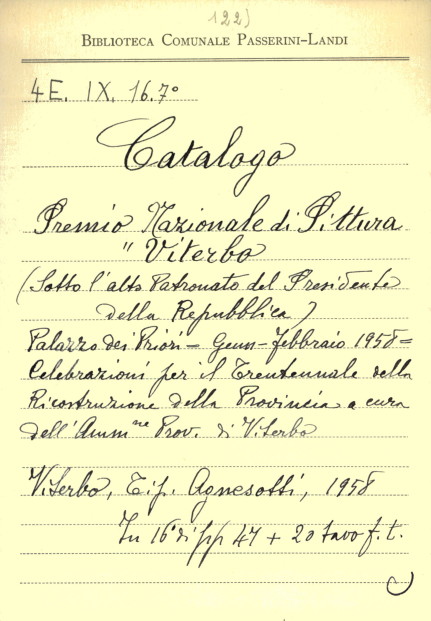 122)
BIBLIOTECA COMUNALE PASSERINI-LANDI
4E. IX. 16.7°
Catalogo
Premio Nazionale di Pittura
" Viterbo
(Sotto l'alto Patronato del Presidente
della Repubblica)
Palazzo dei Priori = Genn-Febbraio 1958=
Celebrazioni per il Trentennale della
Ricostruzione della Provincia a cura
dell'Ammne Prov. di Viterbo
Viterbo, Tip. Agnesotti, 1958
In 16° di pp 47 + 20 tavo f. t.